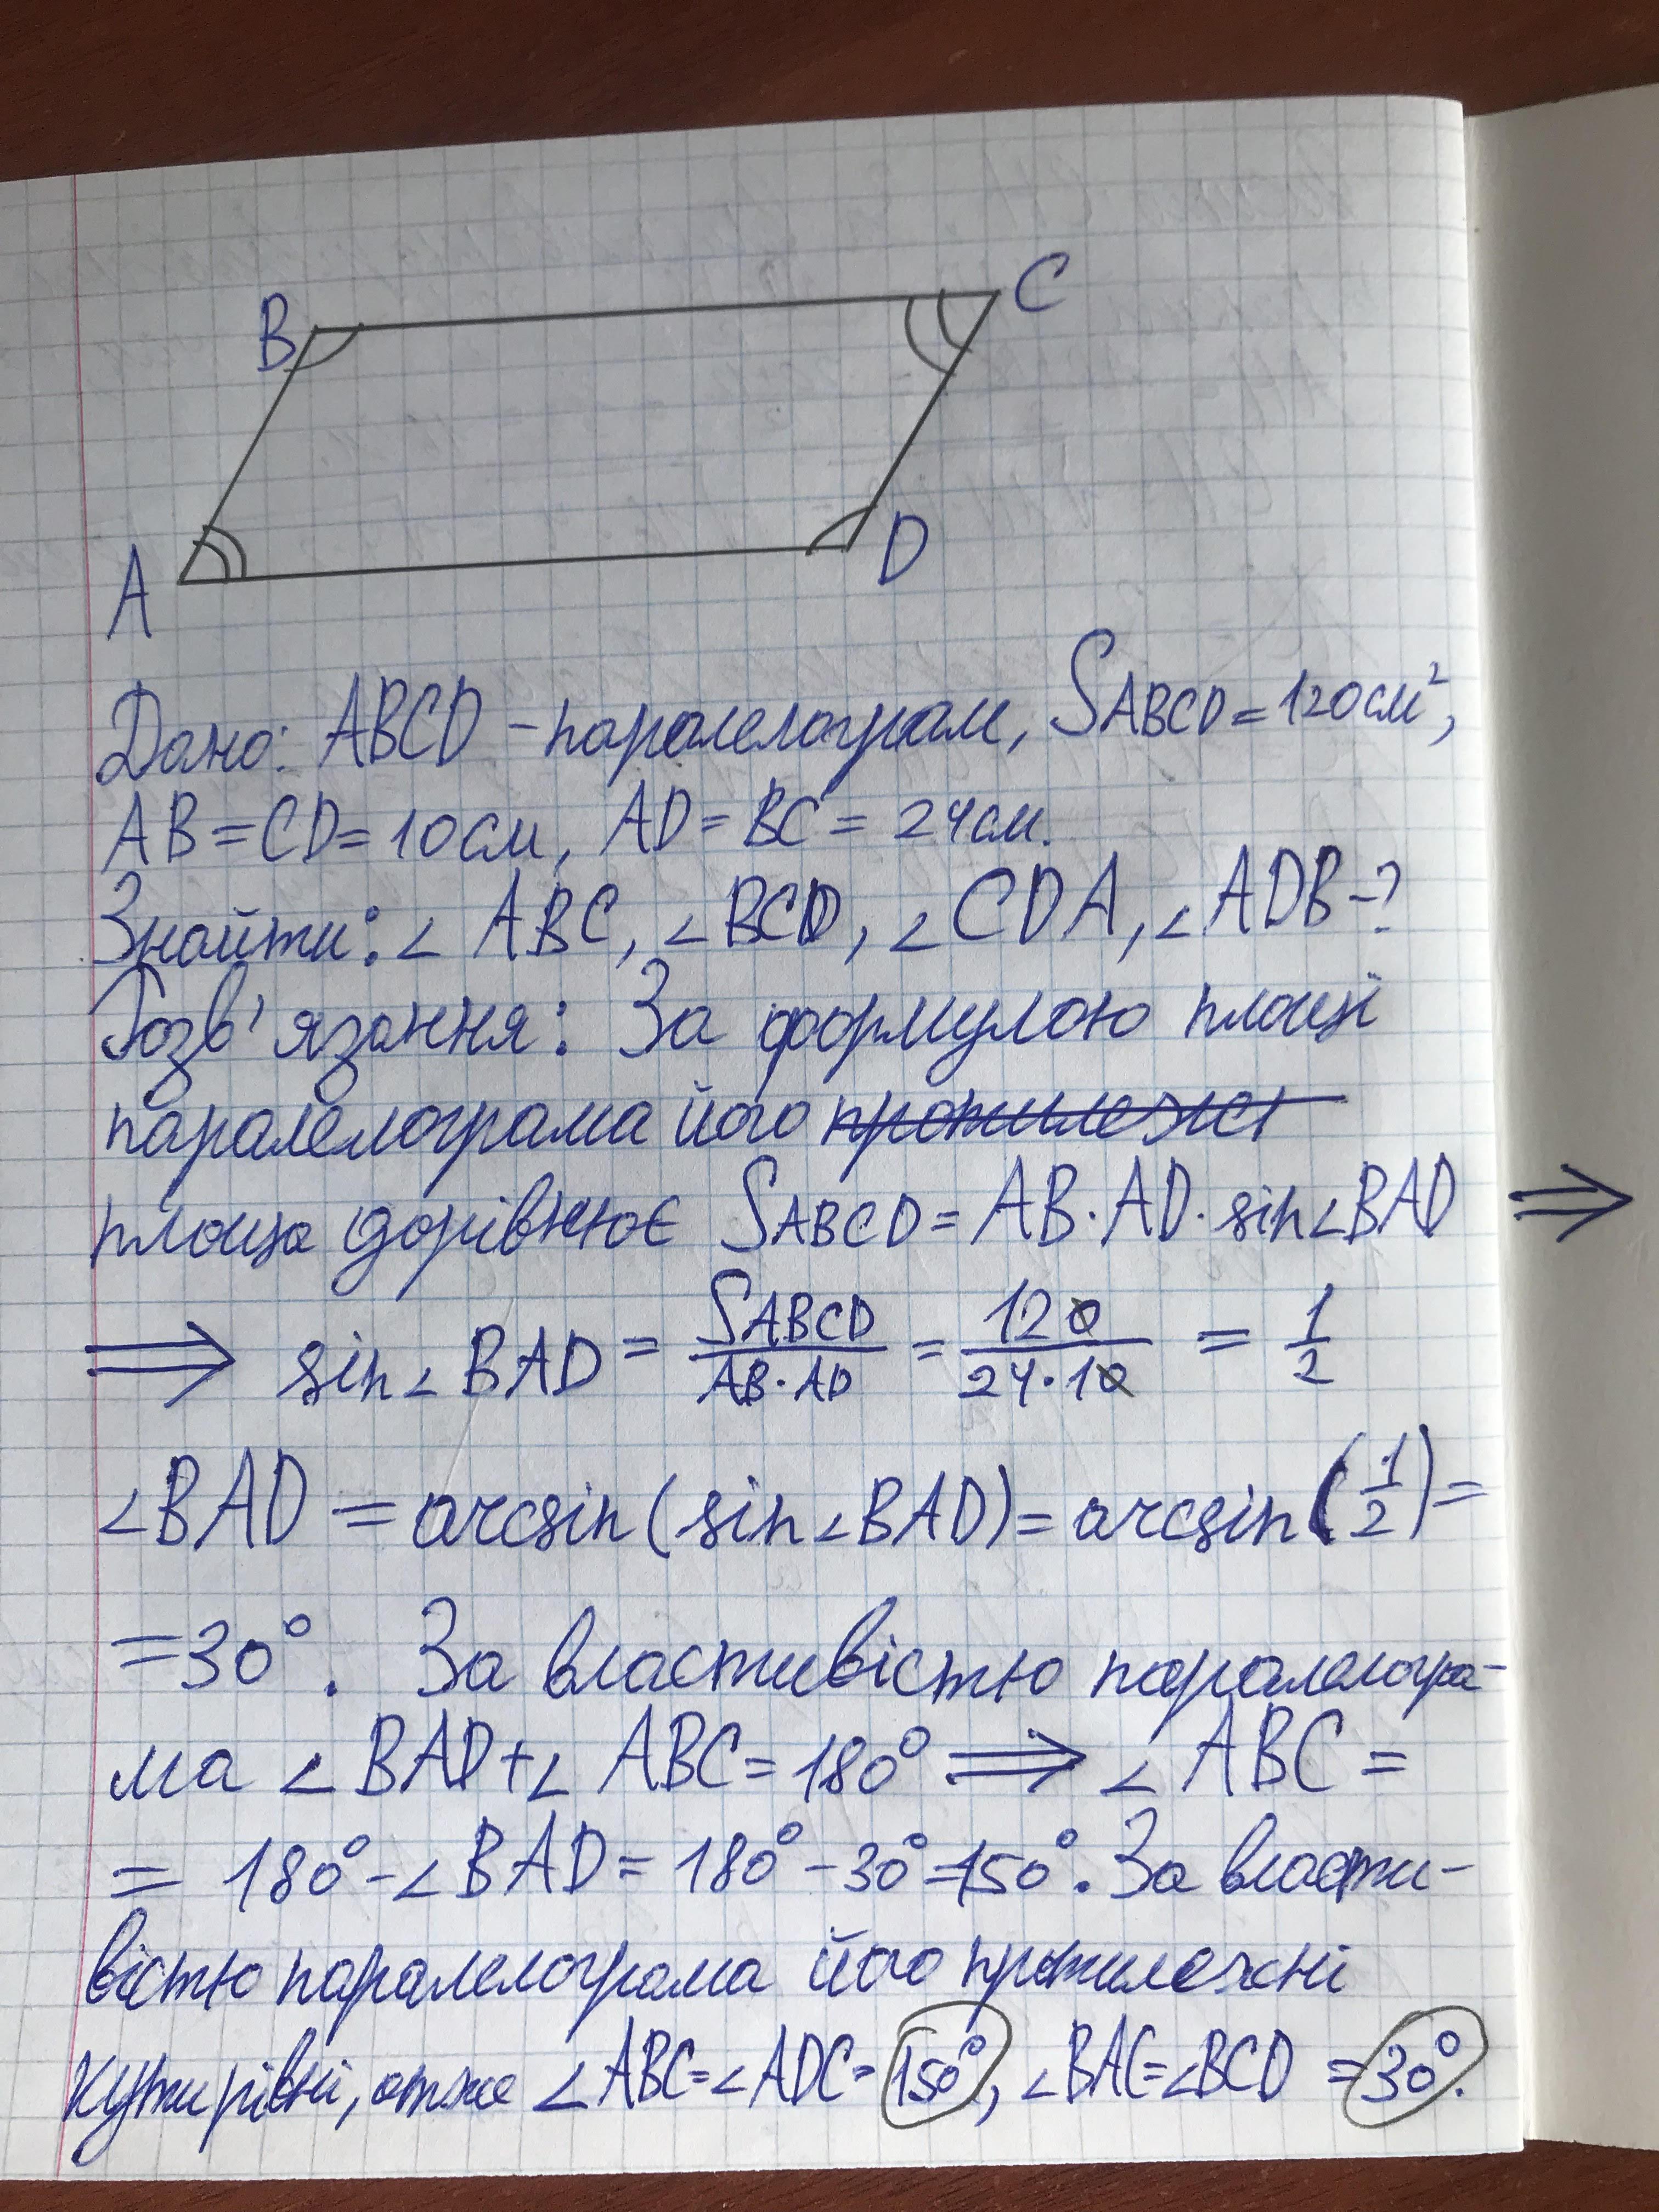 B
C
A
D
Дано: ABCD - паралелограм, SABCD = 120см²,
AB = CD = 10см, AD = BC = 24см.
Знайти: ∠ ABC, ∠BCD, ∠CDA, ∠ADB - ?
Розв'язання: За формулою площі
паралелограма його протилежні
площа дорівнює SABCD = AB · AD · sin∠BAD ⇒
⇒ sin∠BAD = SABCD / AB · AD = 120 / 24 · 10 = 1/2
∠BAD = arcsin(sin∠BAD) = arcsin(1/2) =
= 30°. За властивістю паралелогра-
ма ∠BAD + ∠ABC = 180° ⇒ ∠ABC =
= 180° - ∠BAD = 180° - 30° = 150°. За власти-
вістю паралелограма його протилежні
кути рівні, отже ∠ABC = ∠ADC = 150°, ∠BAC = ∠BCD = 30°.